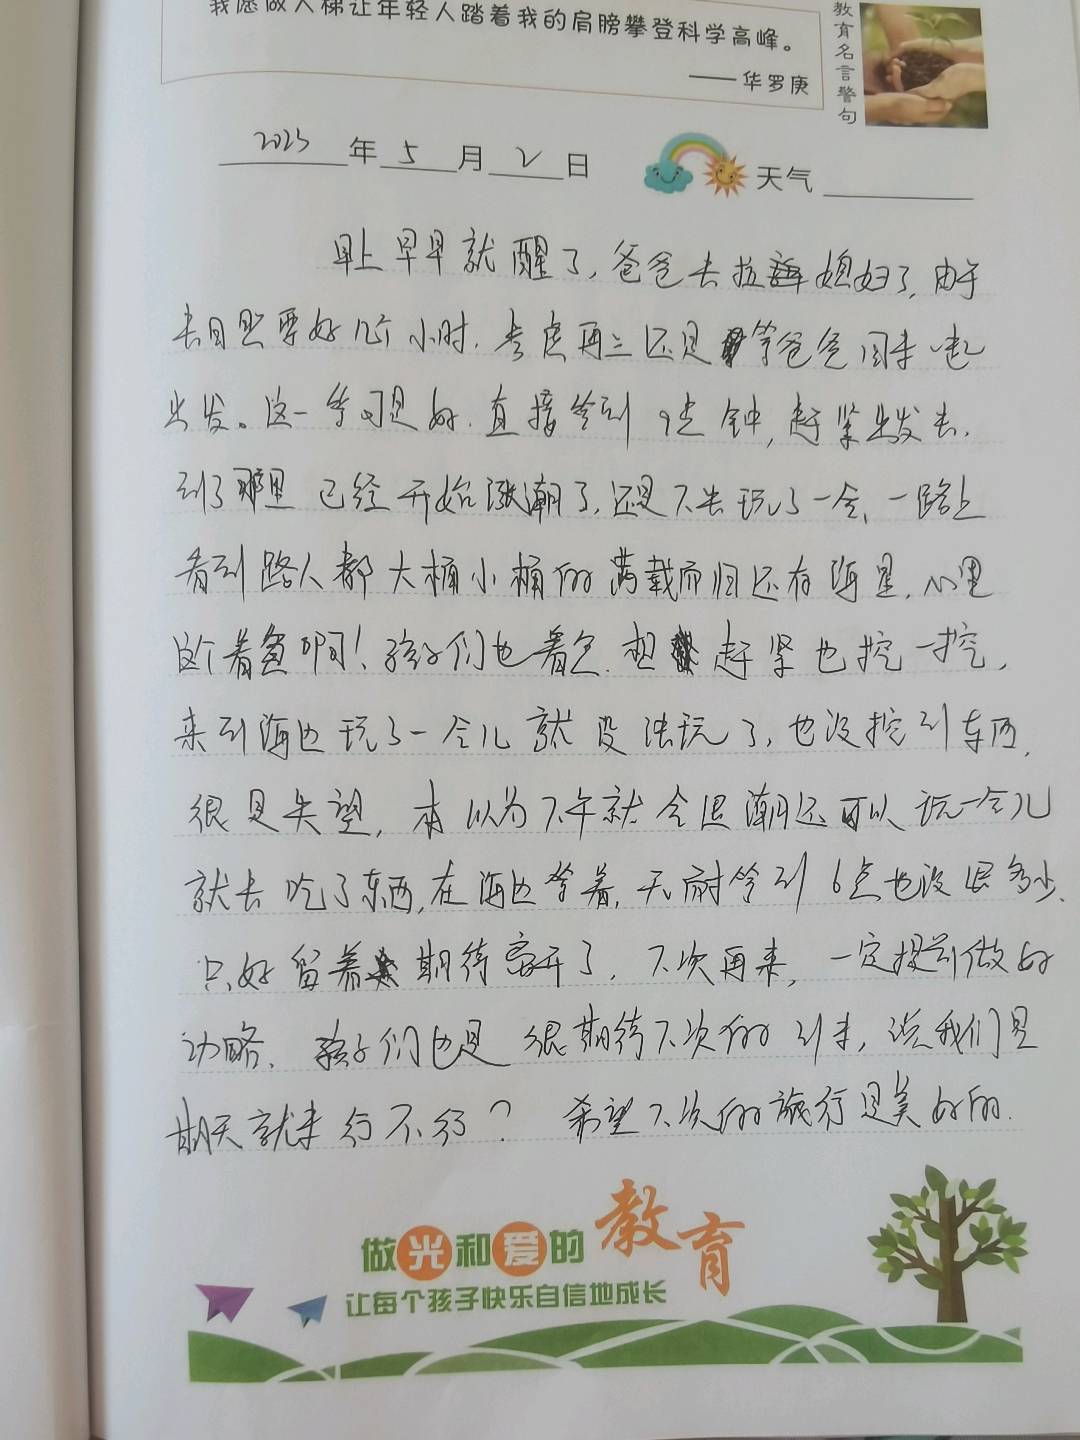 我愿做人梯让年轻人踏着我的肩膀攀登科学高峰。
——华罗庚
教育名言警句
2023年5月2日 天气
早上早早就醒了,爸爸去拉 媳妇了,由于
去日照要好几个小时,考虑再三还是等爸爸回来一起
出发。这一等可是好,直接等到9点钟,赶紧出发去,
到了那里已经开始涨潮了,还是下去玩了一会,一路上
看到路人都大桶小桶的满载而归还有海星,心里
这个着急啊!孩子们也着急,想赶紧也挖一挖,
来到海边玩了一会儿就没法玩了,也没挖到东西,
很是失望,本以为下午就会退潮还可以玩一会儿
就去吃了东西,在海边等着,无耐等到6点也没退多少,
只好留着期待离开了,下次再来,一定提前做好
功略,孩子们也是很期待下次的到来,说我们星
期天就来行不行?希望下次的旅行是美好的.
做光和爱的教育
让每个孩子快乐自信地成长